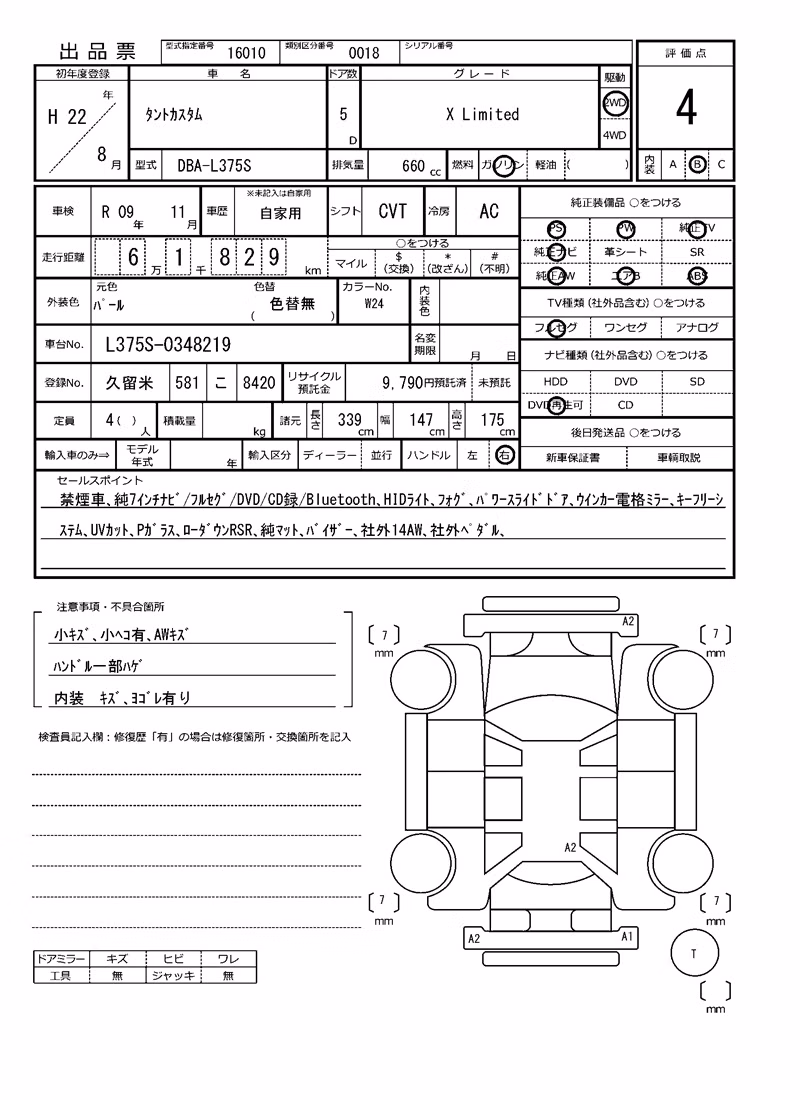 出品票 型式指定番号 16010 類別区分番号 0018 シリアル番号
評価点
4
内装 A B C
初年度登録 車名 ドア数 グレード 駆動
H 22 年 8 月 タントカスタム 5 D X Limited 2WD 4WD
型式 DBA-L375S 排気量 660 cc 燃料 ガソリン 軽油 ( )
車検 R 09 年 11 月 車歴 ※未記入は自家用 自家用 シフト CVT 冷房 AC
走行距離 6 万 1 千 8 2 9 km ○をつける マイル $(交換) *(改ざん) #(不明)
外装色 元色 パール 色替 ( 色替無 ) カラーNo. W24 内装色
車台No. L375S-0348219 名変期限 月 日
登録No. 久留米 581 こ 8420 リサイクル預託金 9,790円預託済 未預託
定員 4( )人 積載量 kg 諸元 長さ 339 cm 幅 147 cm 高さ 175 cm
輸入車のみ⇒ モデル年式 年 輸入区分 ディーラー 並行 ハンドル 左 右
純正装備品 ○をつける
PS PW 純正TV
純正ナビ 革シート SR
純正AW エアB ABS
TV種類(社外品含む)○をつける
フルセグ ワンセグ アナログ
ナビ種類(社外品含む)○をつける
HDD DVD SD
DVD再生可 CD
後日発送品 ○をつける
新車保証書 車輌取説
セールスポイント
禁煙車、純7インチナビ/フルセグ/DVD/CD録/Bluetooth、HIDライト、フォグ、パワースライドドア、ウインカー電格ミラー、キーフリーシ
ステム、UVカット、Pガラス、ローダウンRSR、純マット、バイザー、社外14AW、社外ペダル、
注意事項・不具合箇所
小キズ、小ヘコ有、AWキズ
ハンドル一部ハゲ
内装 キズ、ヨゴレ有り
検査員記入欄:修復歴「有」の場合は修復箇所・交換箇所を記入
ドアミラー キズ ヒビ ワレ
工具 無 ジャッキ 無
A2
7 mm
7 mm
A2
7 mm
7 mm
A2 A1
T
mm